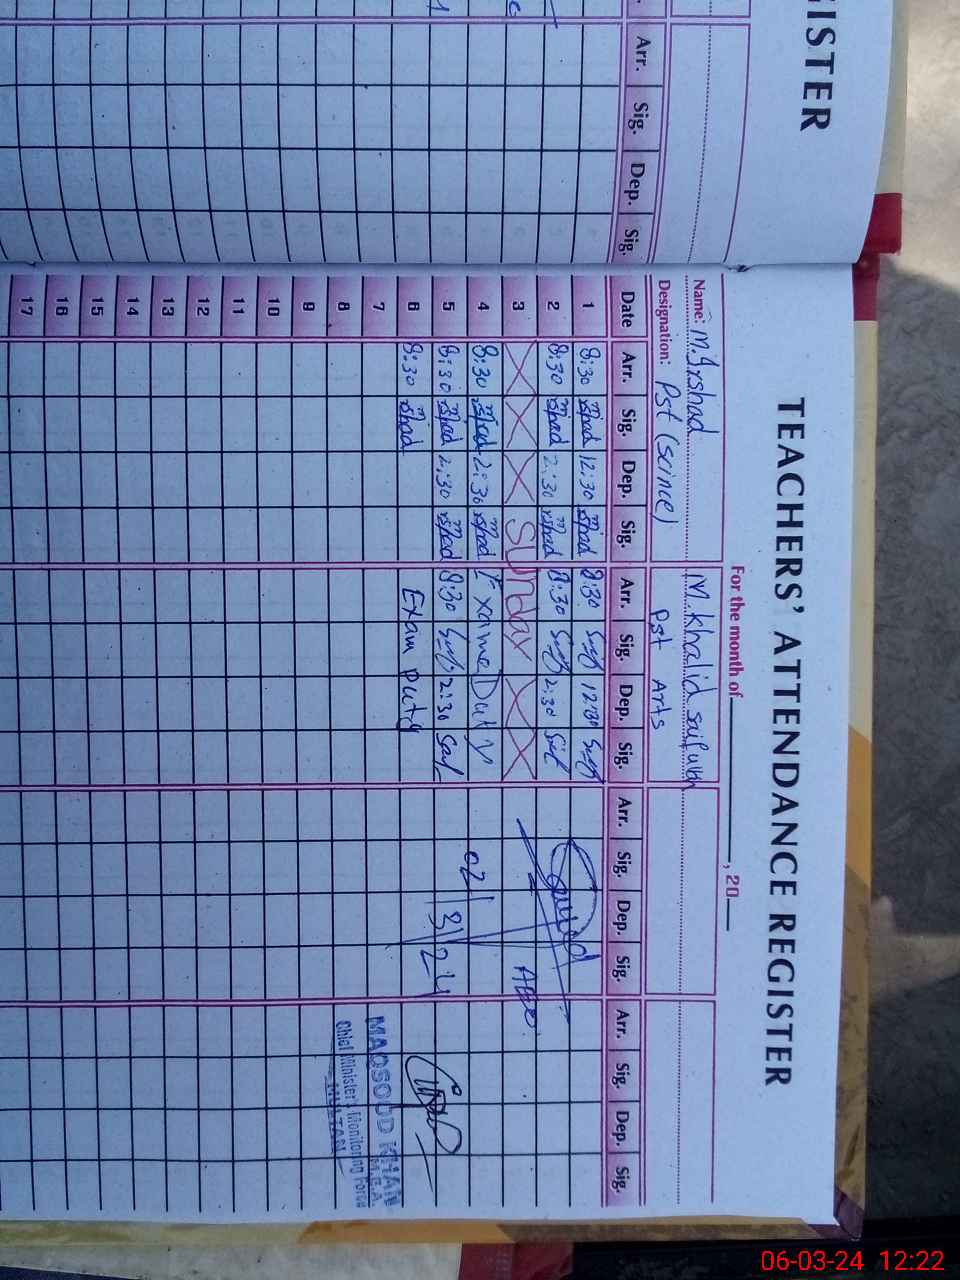 GISTER
Arr. Sig. Dep. Sig.
TEACHERS' ATTENDANCE REGISTER
For the month of , 20
Name: M.Irshad M.Khalid saifullah
Designation: Pst (scince) Pst Arts
Date Arr. Sig. Dep. Sig. Arr. Sig. Dep. Sig. Arr. Sig. Dep. Sig. Arr. Sig. Dep. Sig.
1 8:30 12:30 8:30 12:30
2 8:30 2:30 8:30 2:30
3 Sunday
AEO
4 8:30 2:30 Exame Duty
5 8:30 2:30 8:30 2:30
02/3/24
6 8:30 Exam Duty
7
MAQSOOD KHAN
M.E.A.
8
Chief Minister's Monitoring Force
MULTAN
9
10
11
12
13
14
15
16
17
06-03-24 12:22